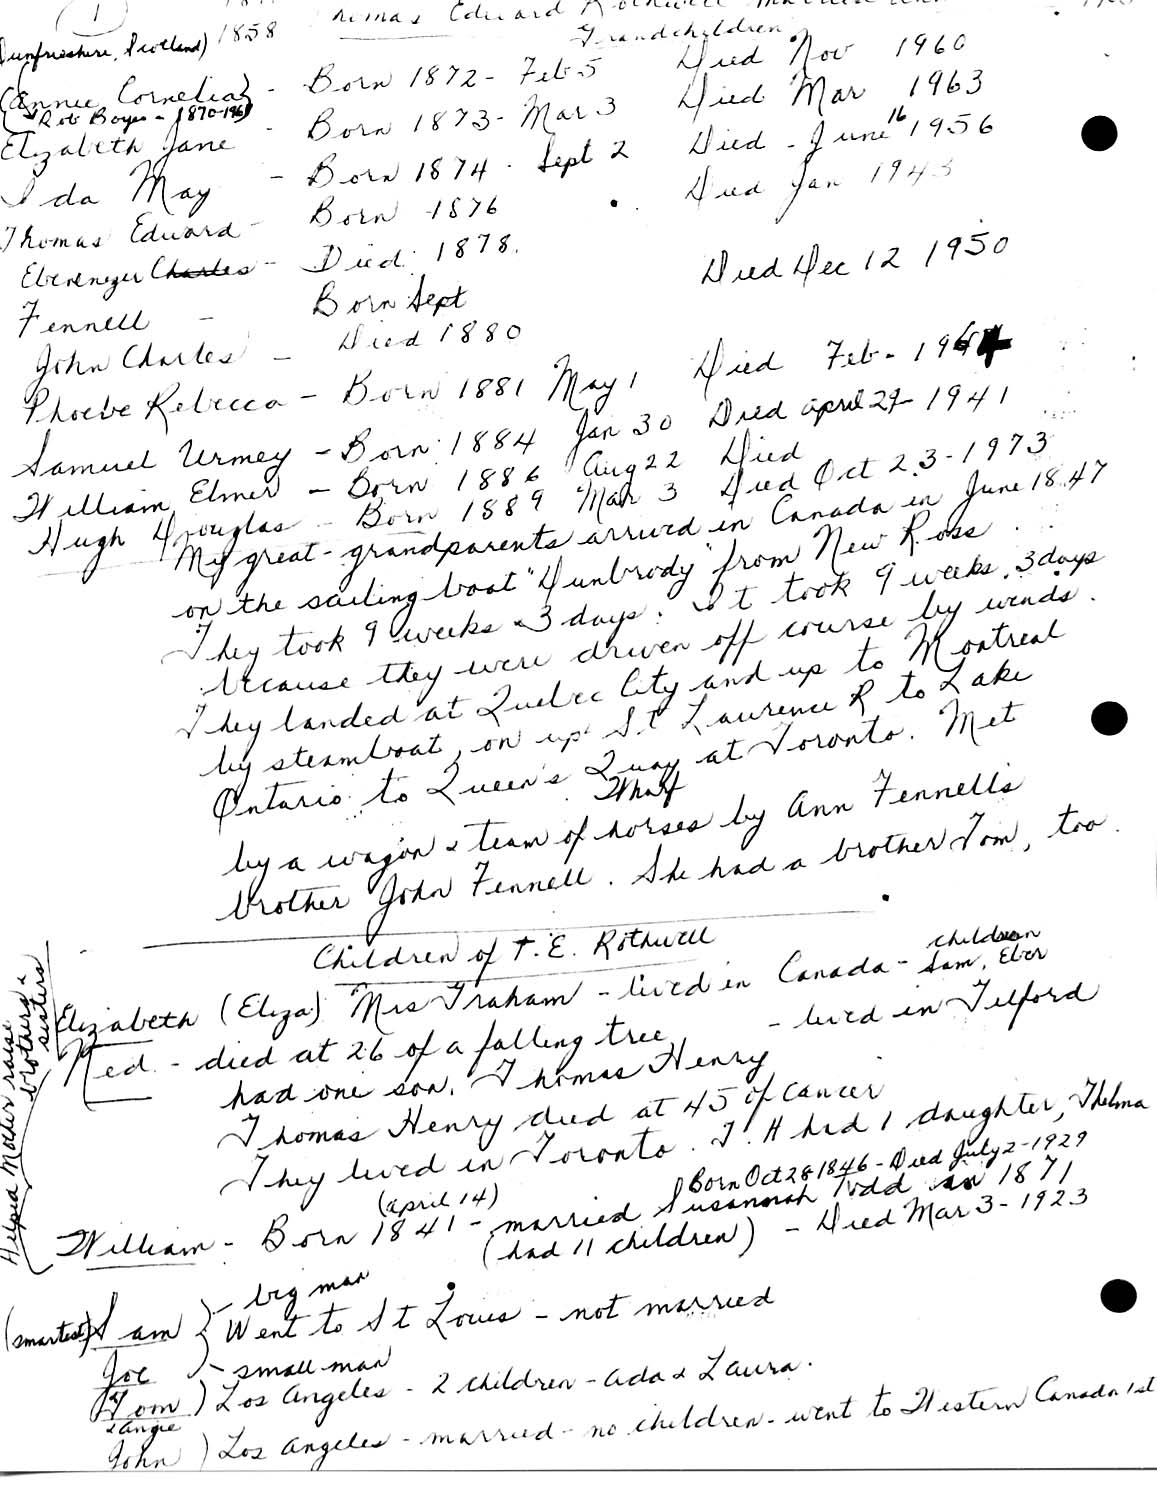 1
Thomas Edward Rothwell married Ann
Dumfrieshire, Scotland) 1858
Grandchildren
(Annie Cornelia) - Born 1872 - Feb 5 Died Nov 1960
Rob Boyes - 1870-196
Elizabeth Jane - Born 1873 - Mar 3 Died Mar 1963
Ida May - Born 1874 - Sept 2 Died - June 16 1956
Thomas Edward - Born 1876 Died Jan 1943
Ebenenezer Charles - Died 1878.
Fennell - Born Sept Died Dec 12 1950
John Charles - Died 1880
Phoebe Rebecca - Born 1881 May 1 Died Feb - 1964
Samuel Urmey - Born 1884 Jan 30 Died april 29 - 1941
William Elmer - Born 1886 Aug 22 Died
Hugh Douglas - Born 1889 Mar 3 Died Oct 23 - 1973
My great-grandparents arrived in Canada in June 1847
on the sailing boat "Dunbrody" from New Ross
They took 9 weeks 3 days. It took 9 weeks, 3 days
because they were driven off course by winds.
They landed at Quebec City and up to Montreal
by steamboat, on up St Laurence R to Lake
Ontario to Queen's Quay at Toronto. Met
Wharf
by a wagon & team of horses by Ann Fennell's
brother John Fennell. She had a brother Tom, too.
Children of T. E. Rothwell
Helped Mother raise brothers & sisters
children
Elizabeth (Eliza) Mrs Graham - lived in Canada - Sam, Eber
Ned - died at 26 of a falling tree - lived in Tilford
had one son. Thomas Henry
Thomas Henry died at 45 of cancer
They lived in Toronto. T. H had 1 daughter, Thelma
(april 14) Born Oct 28 1846 - Died July 2 - 1929
William - Born 1841 - married Susannah Todd in 1871
(had 11 children) - Died Mar 3 - 1923
- big man
(smartest) Sam } Went to St Louis - not married
Joe - small man
Tom ) Los Angeles - 2 children - Ada & Laura.
& Angie
John ) Los Angeles - married - no children - went to Western Canada 1st